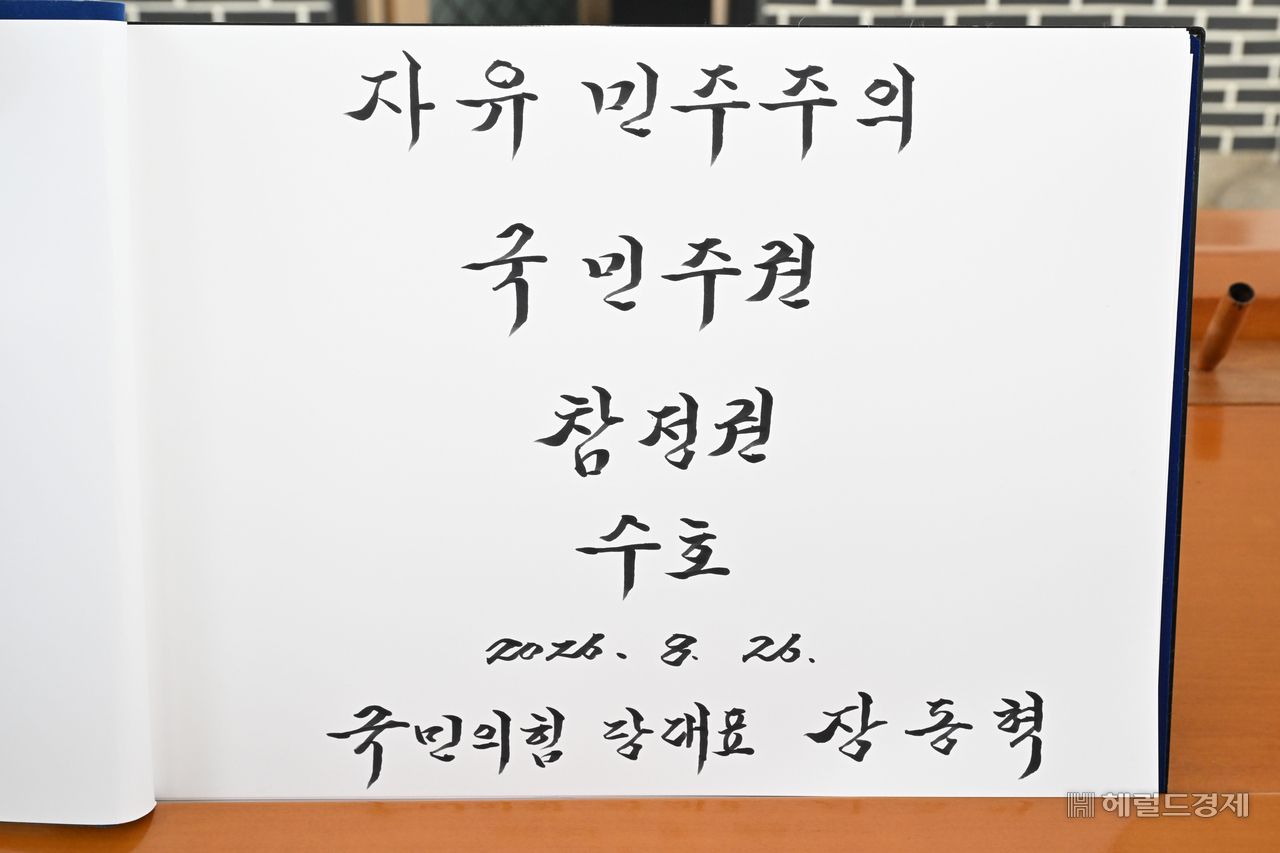 자유 민주주의
국민주권
참정권
수호
2026. 8. 26.
국민의힘 당대표 장동혁
헤럴드경제